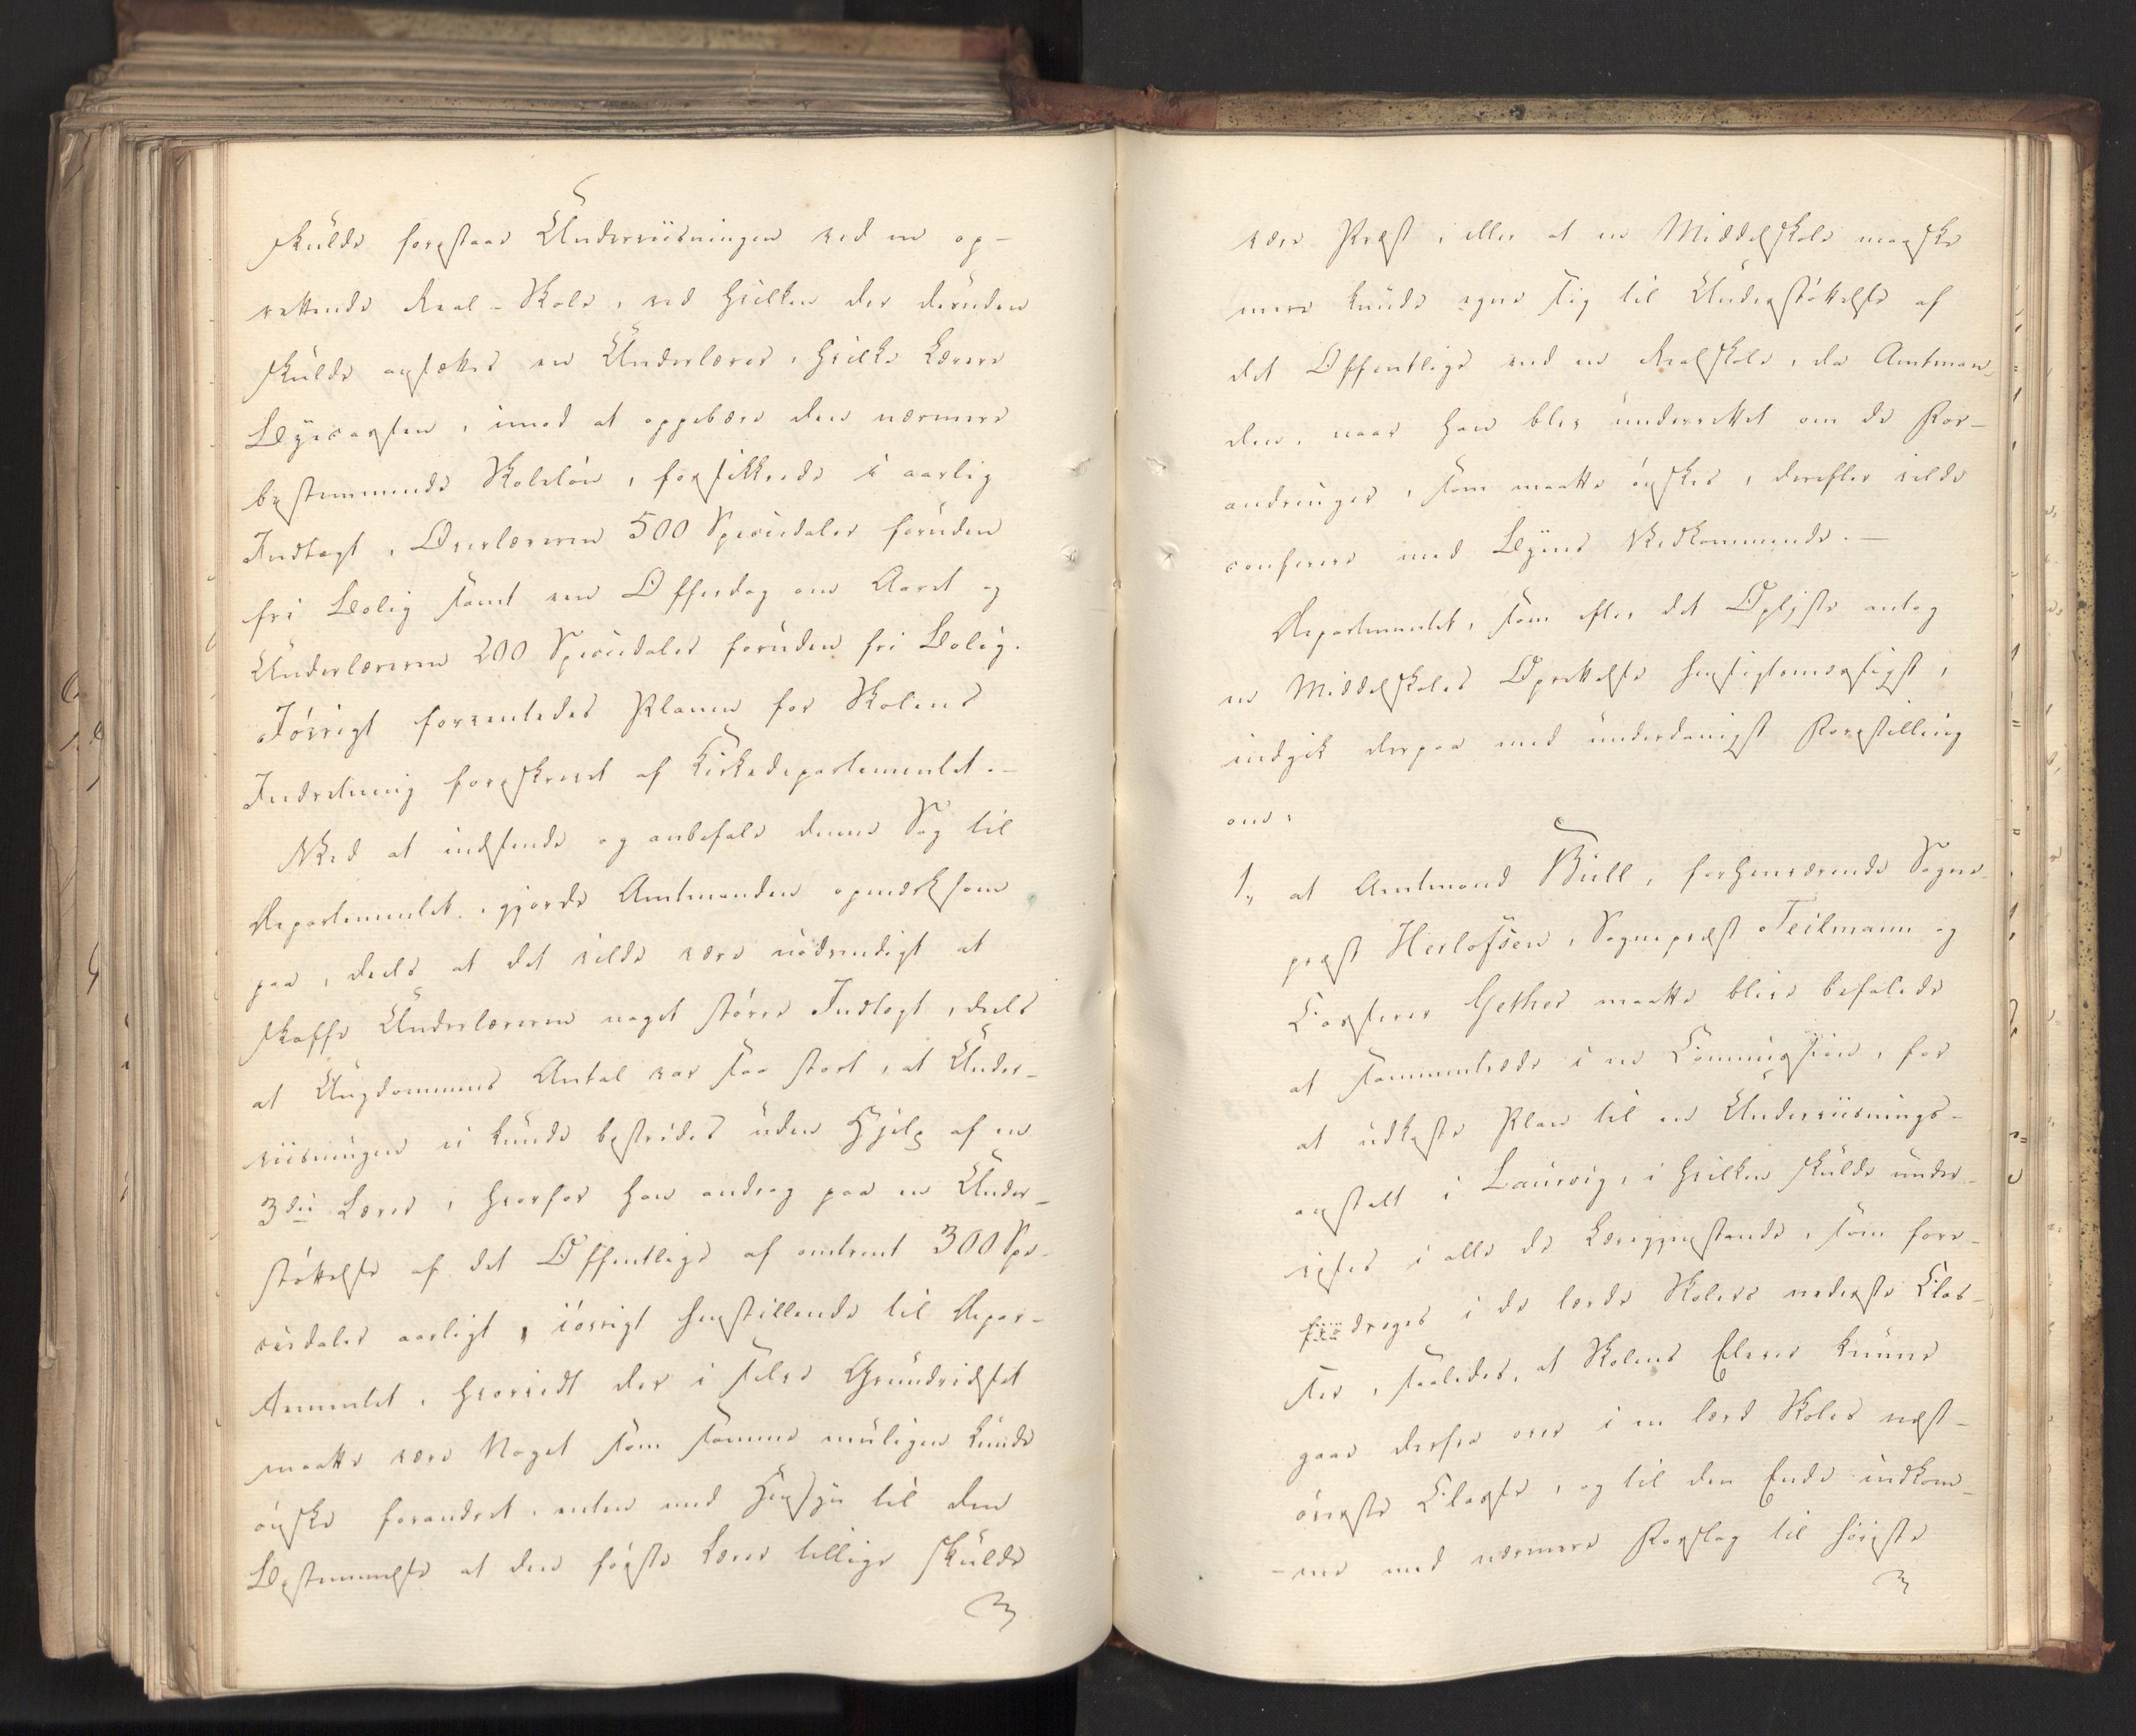 skulde forestaae Underviisningen ved en op-
rettende Real-Skole, ved hvilken der desuden
skulde ansættes en Underlærer, hvilke Lærere
Byecassen, imod at oppebære den nærmere
bestemmende Skoleløn, forsikkrede i aarlig
Indtægt, Overlæreren 500 Speciedaler foruden
fri Bolig samt en Offerdag om Aaret og
Underlæreren 200 Speciedaler foruden fri Bolig.
Iøvrigt forventedes Planen for Skolens
Indretning foreskrevet af Kirkedepartementet.-
Ved at indsende og anbefale denne Sag til
Departementet, gjorde Amtmanden opmærksom
paa, deels at det vilde være nødvendigt at
skaffe Underlæreren noget større Indtægt, deels
at Ungdommens Antal var saa stort, at Under-
viisningen ei kunde bestrides uden Hjelp af en
3die Lærer, hvorfor han androg paa en Under-
støttelse af det Offentlige af omtrent 300 Spe-
ciedaler aarligt, iøvrigt henstillende til Depar-
tementet, hvorvidt der i selve Grundridset
maatte være Noget som samme muligen kunde
ønske forandret, enten med Hensyn til den
Bestemmelse at den første Lærer tillige skulde
være Præst, eller at en Middelskole maaske
mere kunde egne sig til Understøttelse af
det Offentlige end en Realskole, da Amtman-
den, naar han blev underrettet om de For-
andringer, som maatte ønskes, derefter vilde
conferere med Byens Vedkommende.-
Departementet, som efter det Oplyste antog
en Middelskoles Oprettelse hensigtsmæssigst,
indgik derpaa med underdanigst Forestilling
om:
1, at Amtmand Bull, forhenværende Sogne-
præst Herlofsen, Sognepræst Teilmann og
Casserer Gether maatte blive befalede
at sammentræde i en Commission, for
at udkaste Plan til en Underviisnings-
anstalt i Laurvig, i hvilken skulde under-
vises i alle de Læregjenstande, som fore-
drages i de lærde Skolers nederste Clas-
ser, saaledes, at Skolens Elever kunne
gaae derfra over i en lærd Skoles næst-
øverste Classe, og til den Ende indkom-
-me med nærmere Forslag til høieste